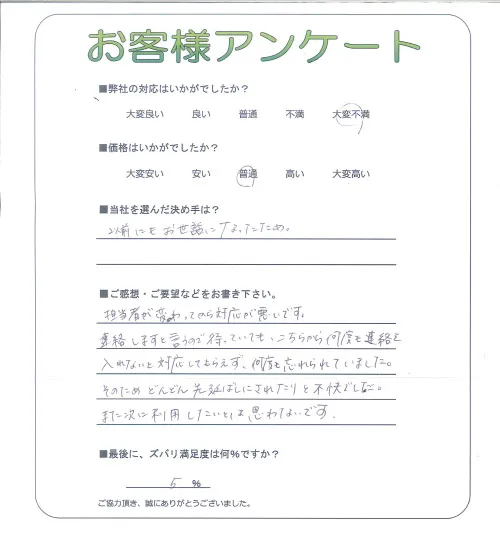 お客様アンケート
■弊社の対応はいかがでしたか？
大変良い 良い 普通 不満 大変不満
■価格はいかがでしたか？
大変安い 安い 普通 高い 大変高い
■当社を選んだ決め手は？
以前にもお世話になったため。
■ご感想・ご要望などをお書き下さい。
担当者が変わってから対応が悪いです。
連絡しますと言うので待っていても、こちらから何度も連絡を
入れないと対応してもらえず、何度も忘れられていました。
そのためどんどん先延ばしにされたりと不快でした。
また次に利用したいとは思わないです。
■最後に、ズバリ満足度は何％ですか？
5 ％
ご協力頂き、誠にありがとうございました。